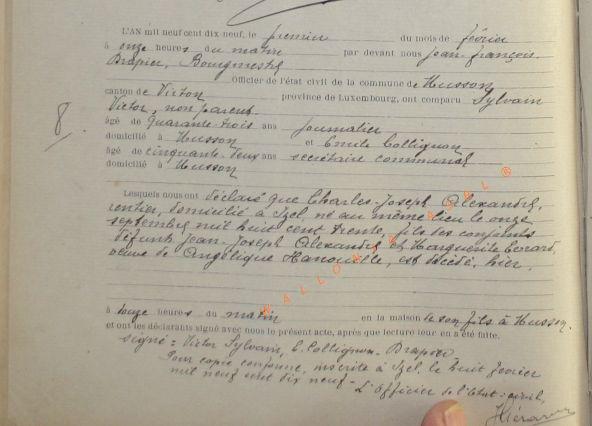 L'AN mil neuf cent dix neuf, le premier du mois de février
à onze heures du matin par devant nous Jean-François
Drapier, Bourgmestre
Officier de l'état civil de la commune de Musson
canton de Virton province de Luxembourg, ont comparu Sylvain
Victor, non parent
8
âgé de quarante trois ans journalier
domicilié à Musson et Emile Collignon
âgé de cinquante-deux ans secrétaire communal
domicilié à Musson
Lesquels nous ont déclaré que Charles-Joseph Alexandre,
rentier, domicilié à Izel, né au même lieu le onze
septembre mil huit cent trente, fils des conjoints
défunts Jean-Joseph Alexandre et Marguerite Evrard,
veuve de Angélique Hanouille, est décédé, hier,
à douze heures du matin en la maison de son fils à Musson.
et ont les déclarants signé avec nous le présent acte, après que lecture leur en a été faite.
signé = Victor Sylvain, E. Collignon. Drapier
Pour copie conforme, inscrite à Izel, le huit février
mil neuf cent dix neuf - L'Officier de l'Etat-civil,
WALLONIE ASBL ®